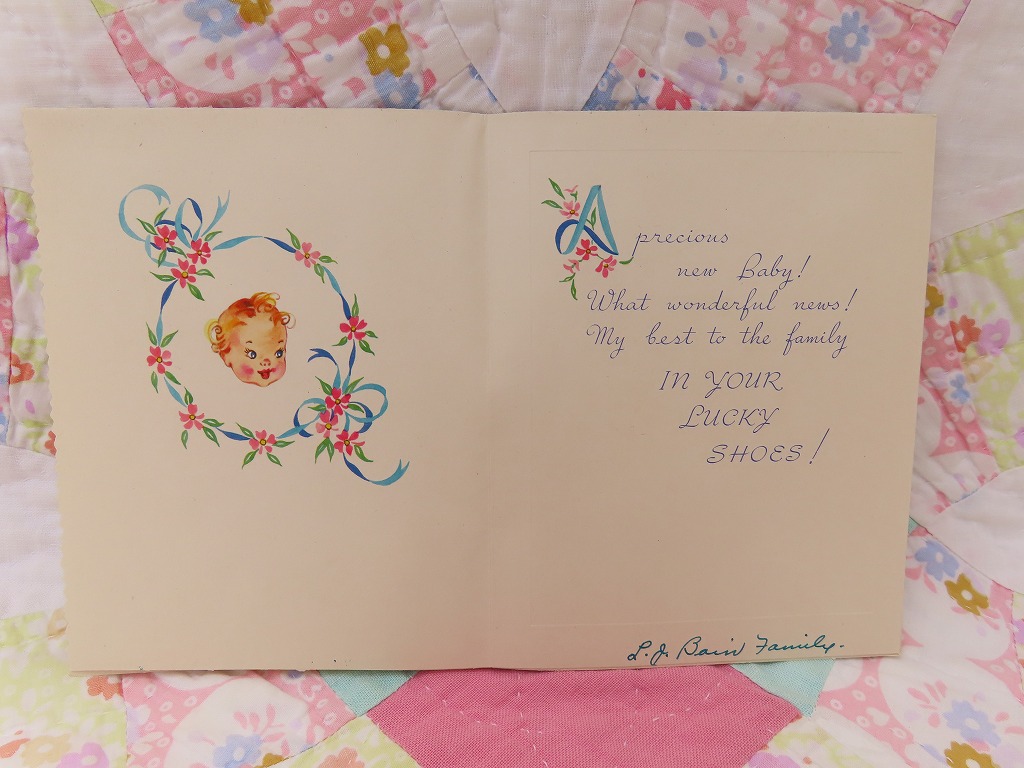 A precious
new Baby!
What wonderful news!
My best to the family
IN YOUR
LUCKY
SHOES!
L. J. Bain Family.